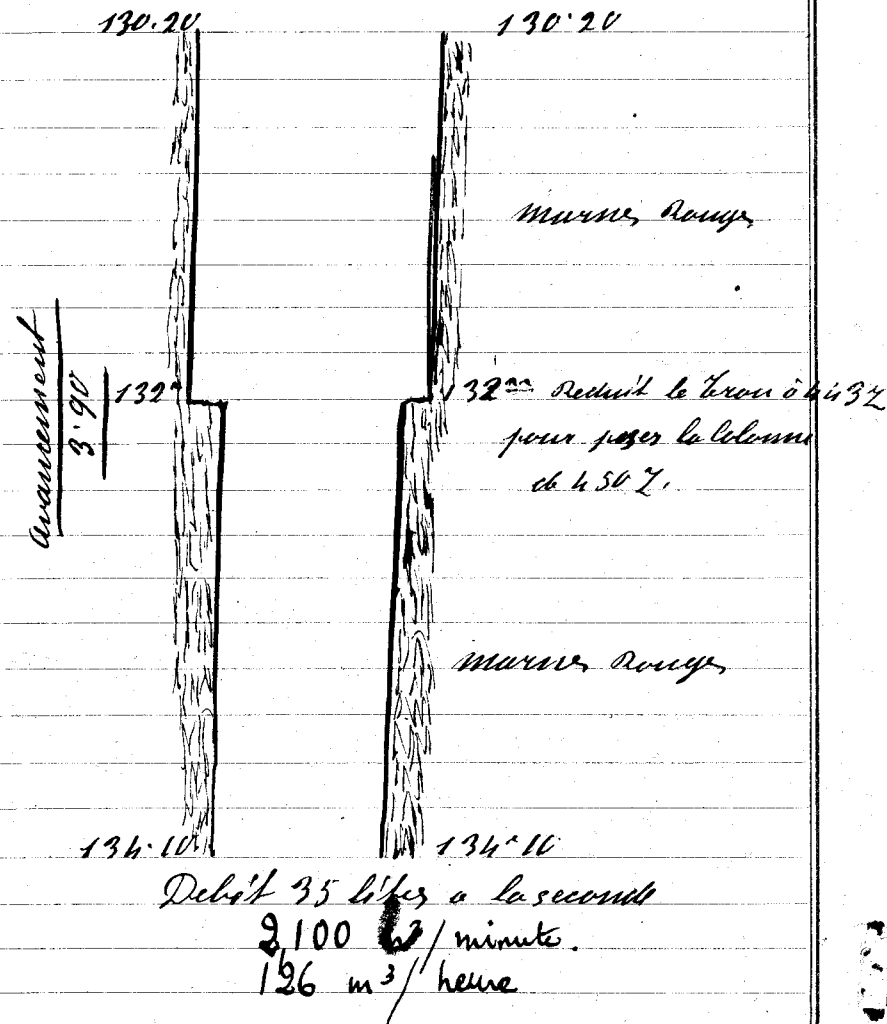 130.20 130.20
Marnes Rouges
Avancement
3.90
132m 132m Reduit le Trou à
pour poser la Colonne
de
Marnes Rouges
134.10 134.10
Debit 35 litres a la seconde
2,100 m3/minute.
126 m3/heure